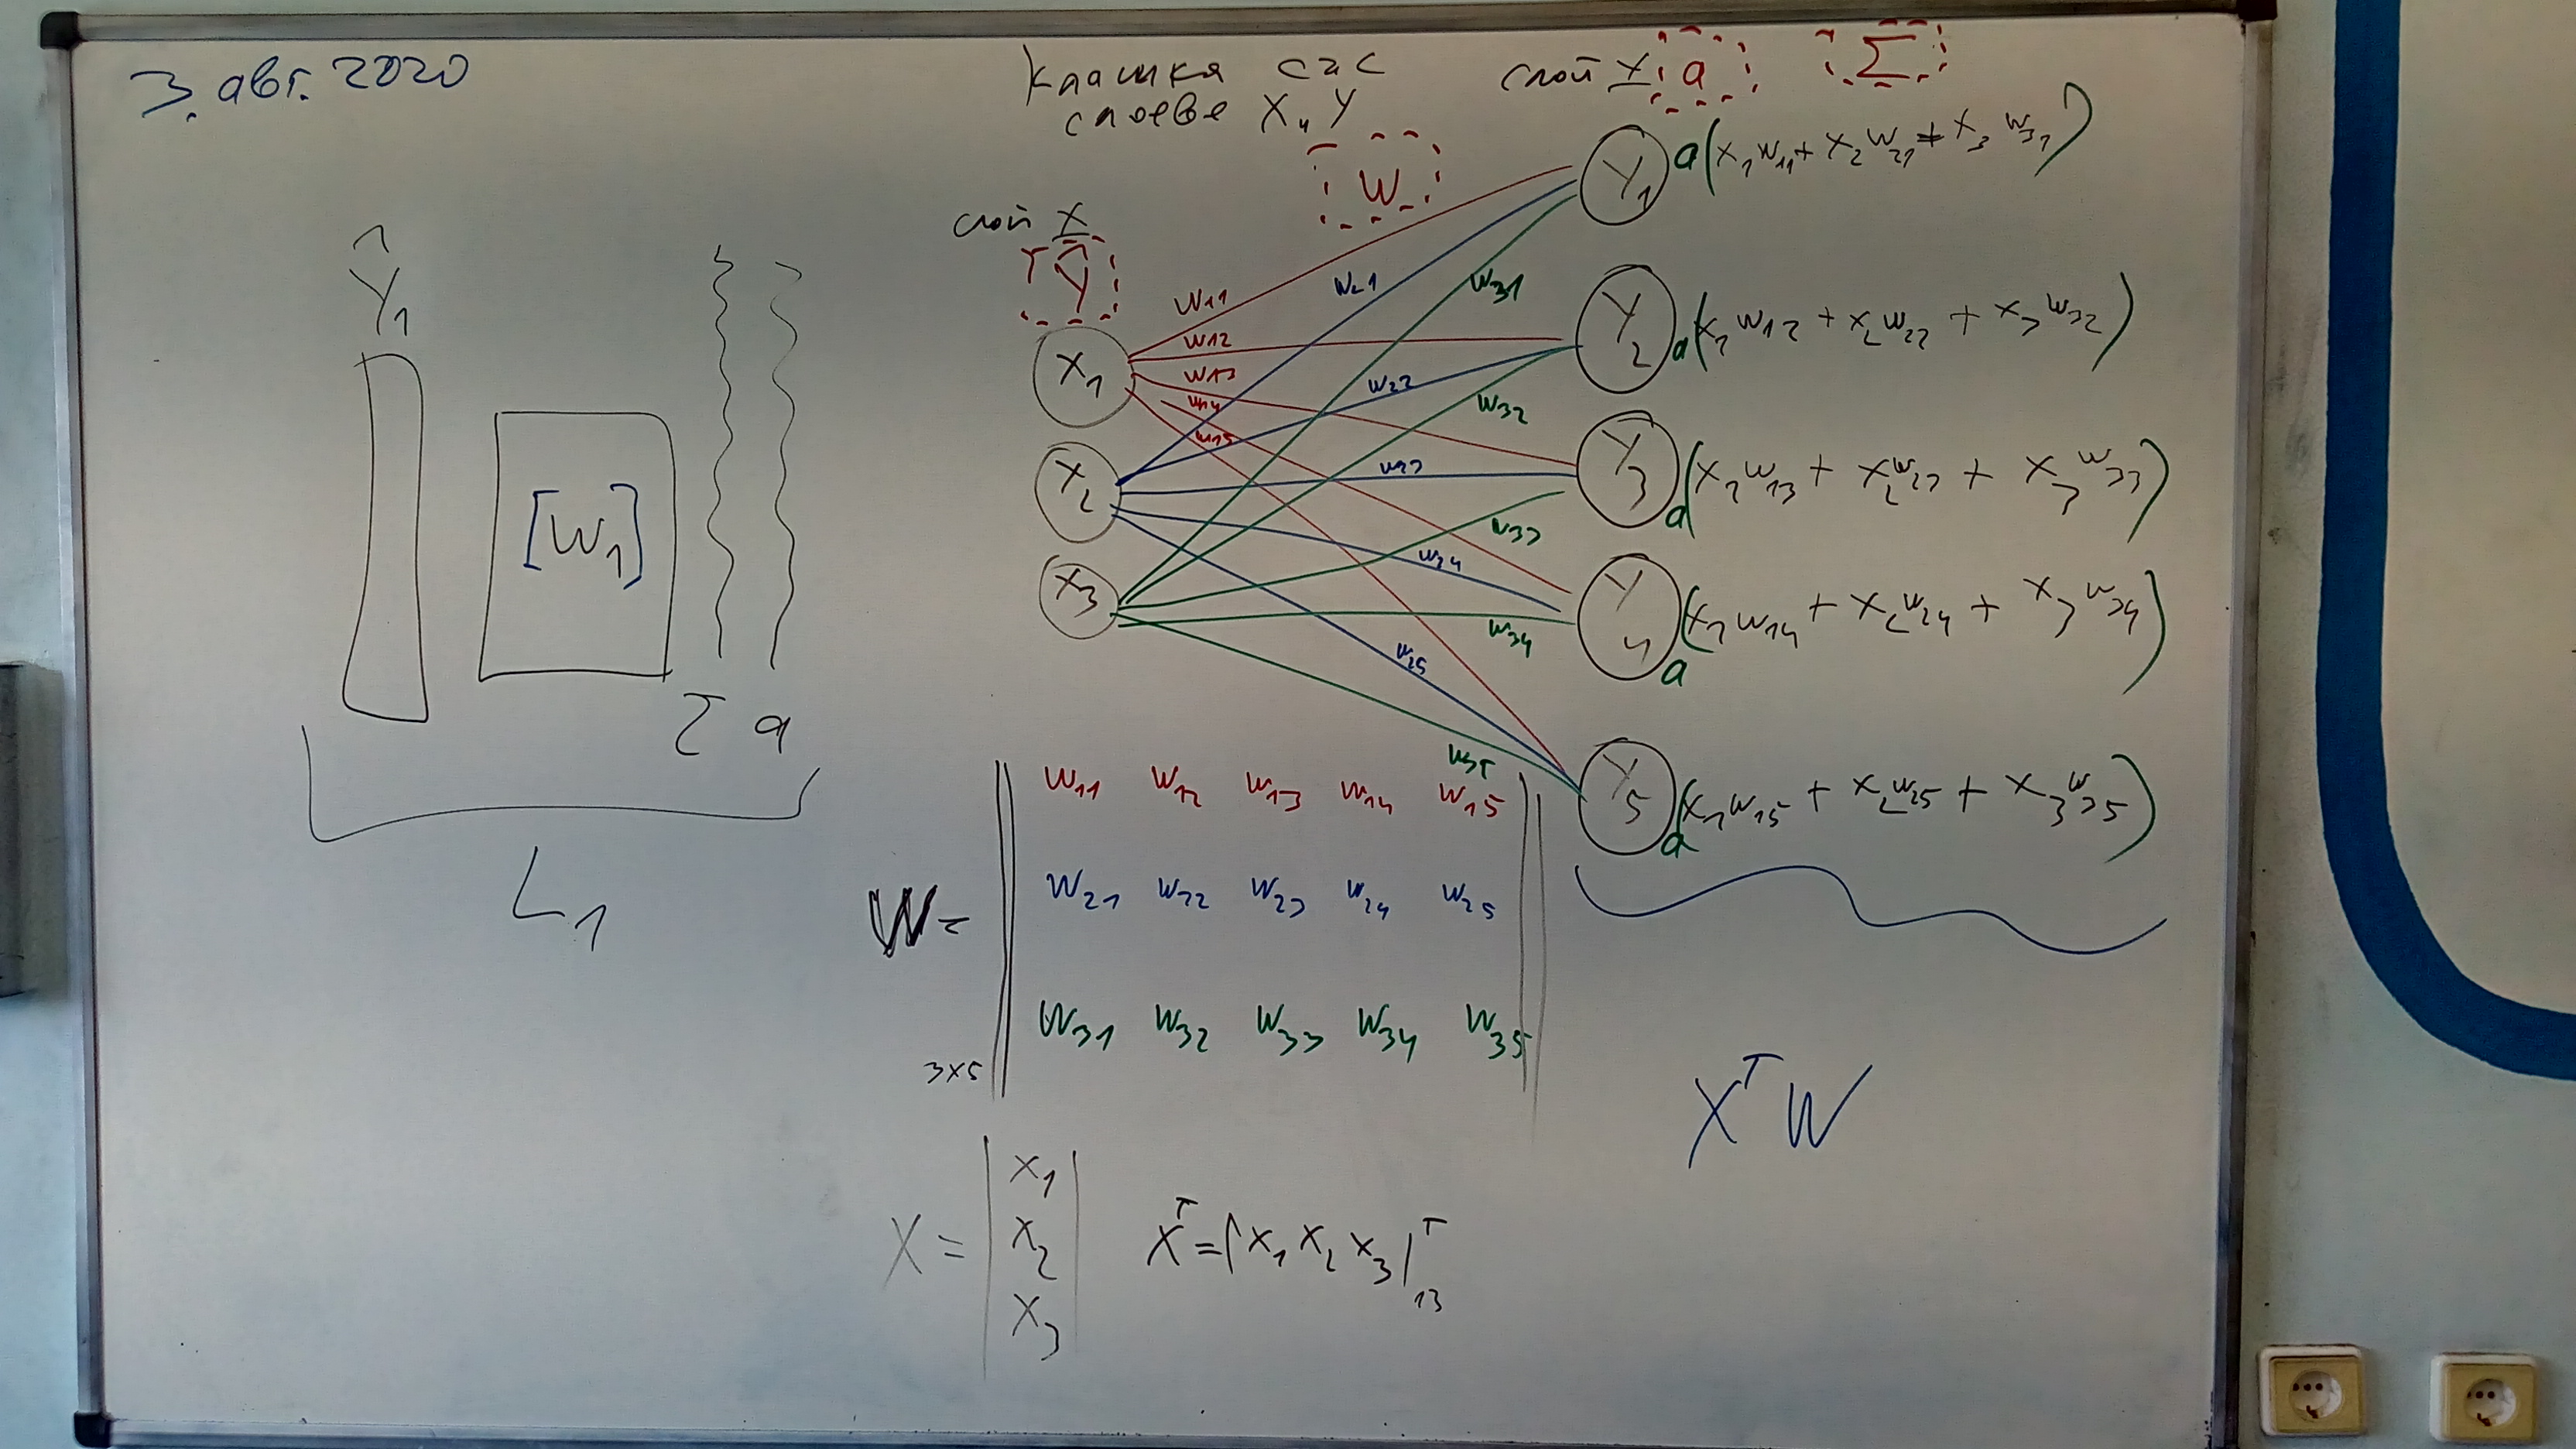 3. авг. 2020
Клашкя със
слоеве X и Y
слой Y
a
Σ
W
слой X
Ŷ
Ŷ₁
[W₁]
Σ a
L₁
X₁
X₂
X₃
W₁₁
W₁₂
W₁₃
W₁₄
W₁₅
W₂₁
W₂₂
W₂₃
W₂₄
W₂₅
W₃₁
W₃₂
W₃₃
W₃₄
W₃₅
Y₁ a(x₁w₁₁ + x₂w₂₁ + x₃w₃₁)
Y₂ a(x₁w₁₂ + x₂w₂₂ + x₃w₃₂)
Y₃ a(x₁w₁₃ + x₂w₂₃ + x₃w₃₃)
Y₄ a(x₁w₁₄ + x₂w₂₄ + x₃w₃₄)
Y₅ a(x₁w₁₅ + x₂w₂₅ + x₃w₃₅)
W₁₁ W₁₂ W₁₃ W₁₄ W₁₅
W = W₂₁ W₂₂ W₂₃ W₂₄ W₂₅
W₃₁ W₃₂ W₃₃ W₃₄ W₃₅
3x5
XᵀW
x₁
X = x₂
x₃
Xᵀ = |x₁ x₂ x₃|ᵀ₁₃